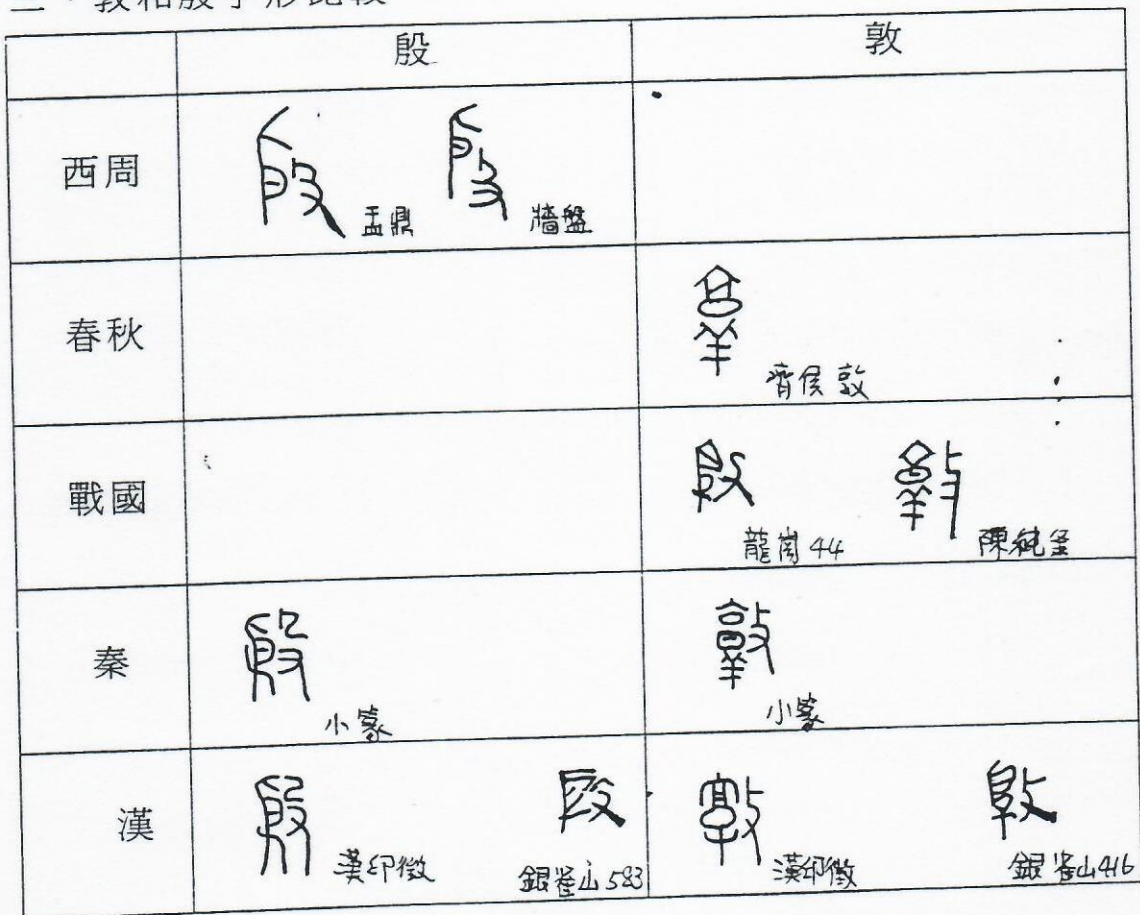 三、敦和殷字形比較
殷 敦
西周 盂鼎 牆盤
春秋 齊侯敦
戰國 龍崗44 陳純釜
秦 小篆 小篆
漢 漢印徵 銀雀山583 漢印徵 銀雀山416